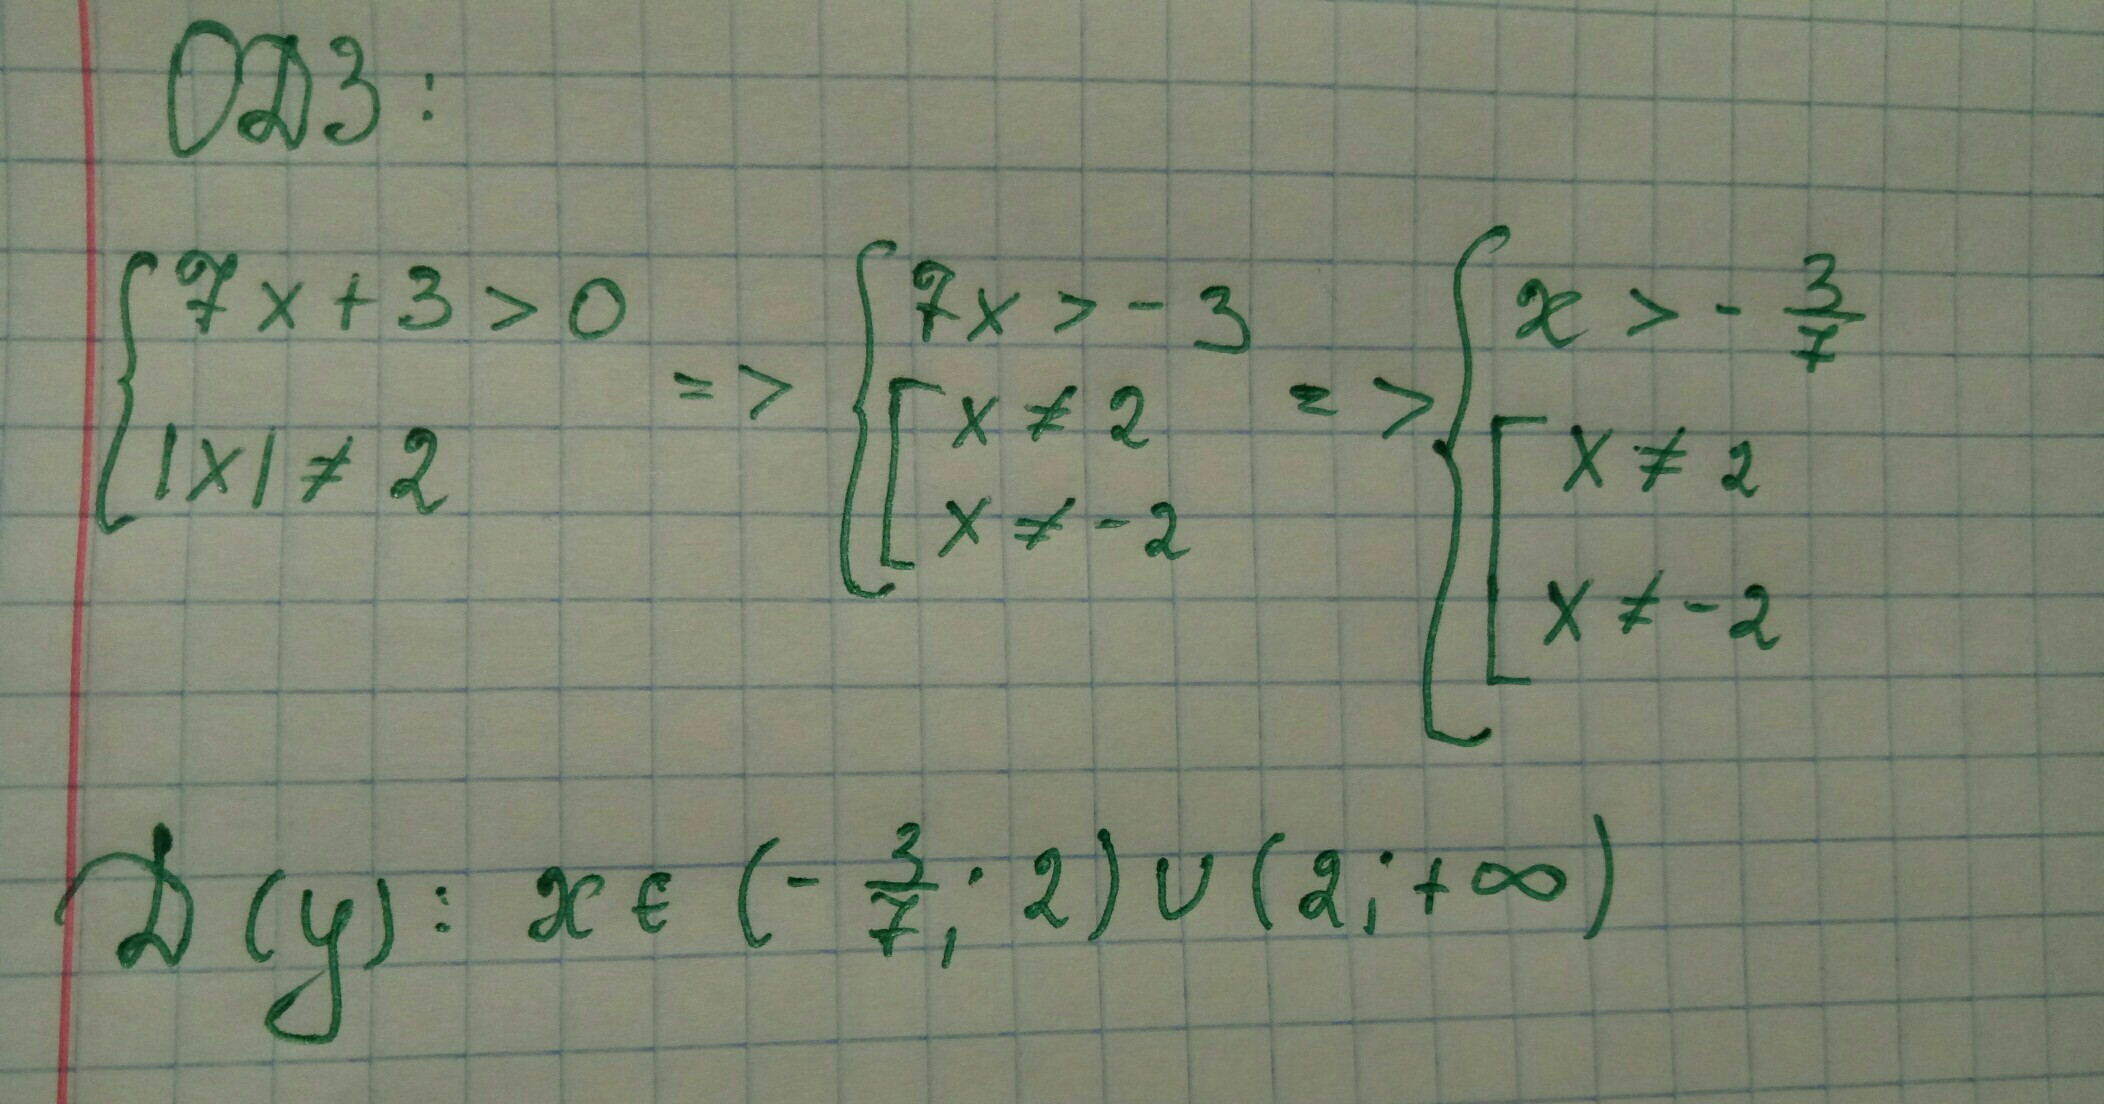 ОДЗ:
{ 7x + 3 > 0 => { 7x > - 3 => { x > - 3/7
|x| ≠ 2 [ x ≠ 2 [ x ≠ 2
x ≠ -2 x ≠ -2
D(y): x ∈ (- 3/7; 2) ∪ (2; +∞)